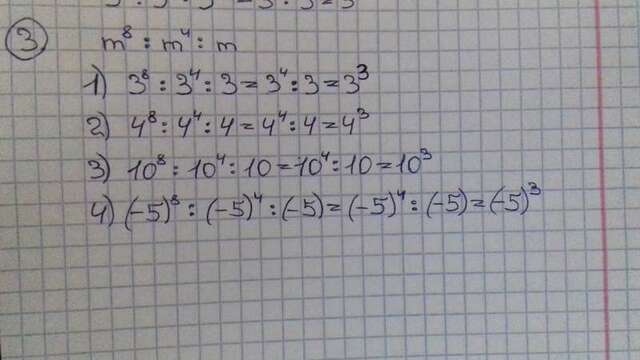 ③
m⁸ : m⁴ : m
1) 3⁸ : 3⁴ : 3 = 3⁴ : 3 = 3³
2) 4⁸ : 4⁴ : 4 = 4⁴ : 4 = 4³
3) 10⁸ : 10⁴ : 10 = 10⁴ : 10 = 10³
4) (-5)⁸ : (-5)⁴ : (-5) = (-5)⁴ : (-5) = (-5)³